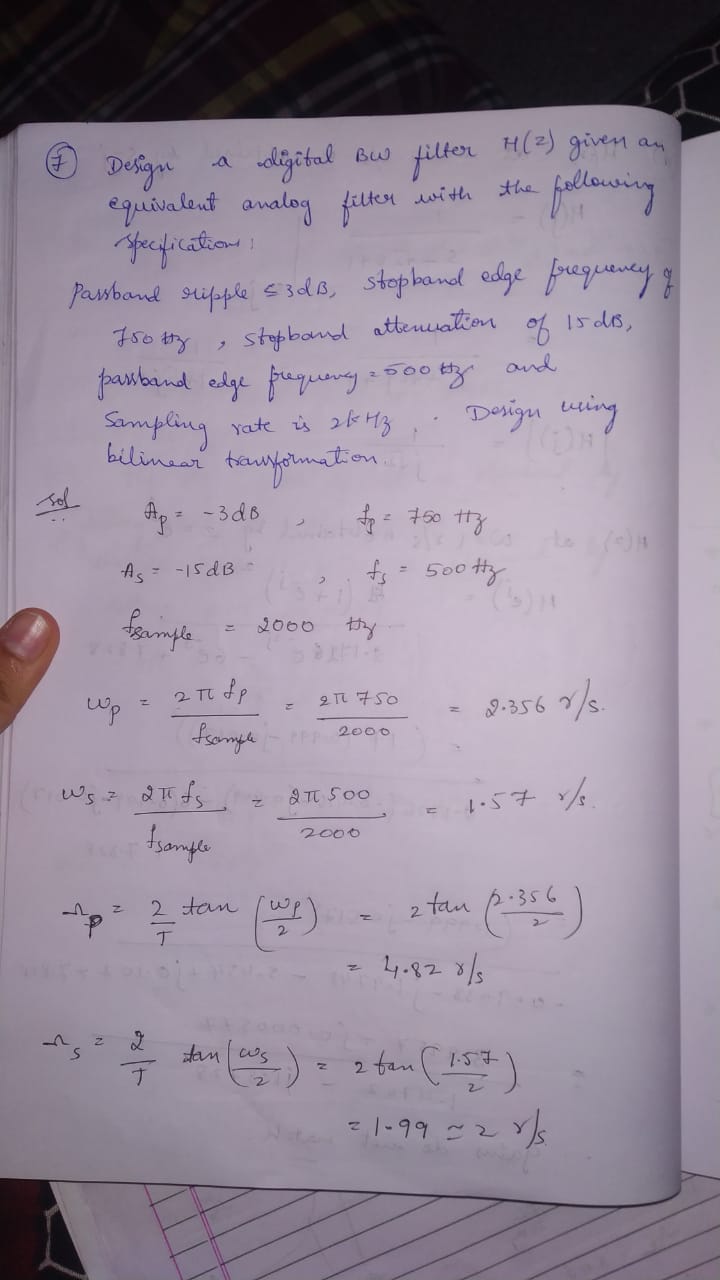 7 Design a digital BW filter H(z) given an
equivalent analog filter with the following
specifications:
Passband ripple ≤ 3dB, stopband edge frequency of
750 Hz, stopband attenuation of 15 dB,
passband edge frequency = 500 Hz and
Sampling rate is 2kHz. Design using
bilinear transformation.
Sol
Ap = -3dB , fp = 750 Hz
As = -15dB , fs = 500 Hz
fsample = 2000 Hz
ωp = 2π fp / fsample = 2π 750 / 2000 = 2.356 r/s.
ωs = 2π fs / fsample = 2π 500 / 2000 = 1.57 r/s.
Ωp = 2/T tan (ωp/2) = 2 tan (2.356/2)
= 4.82 r/s
Ωs = 2/T tan (ωs/2) = 2 tan (1.57/2)
= 1.99 ≃ 2 r/s